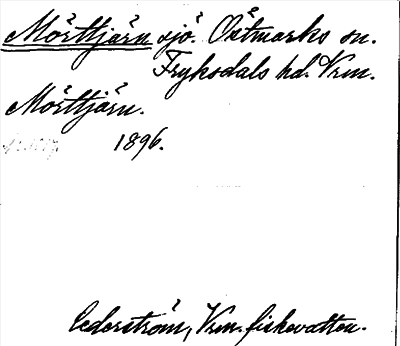 Mörttjärn sjö. Östmarks sn.
Fryksdals hd. Vrm.
Mörttjärn.
1896.
Cederström, Vrm. fiskevatten.